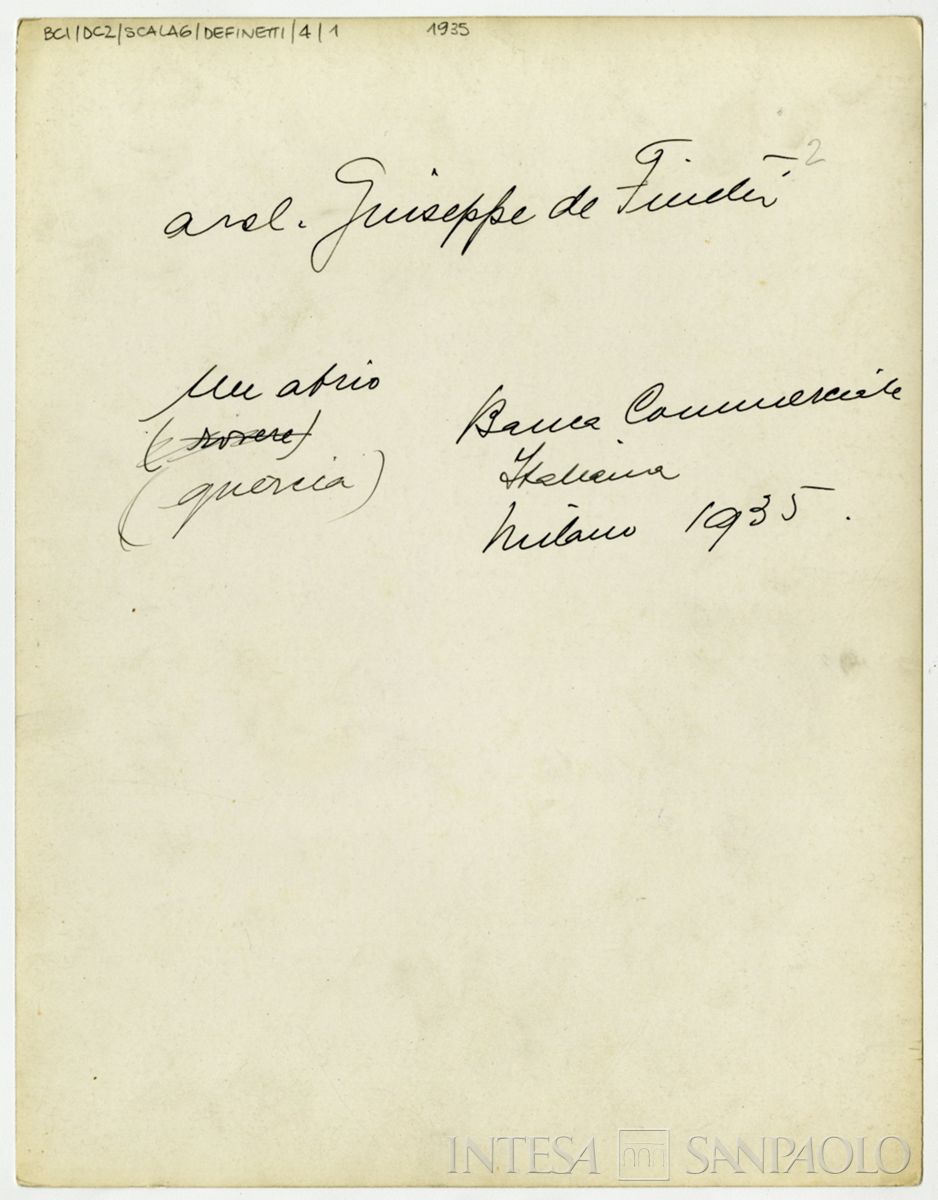 BCI/DC2/SCALA6/DEFINETTI/4/1 1935
2
arch. Giuseppe de Finetti
Un atrio
(rovere)
(quercia)
Banca Commerciale
Italiana
Milano 1935.
INTESA SANPAOLO